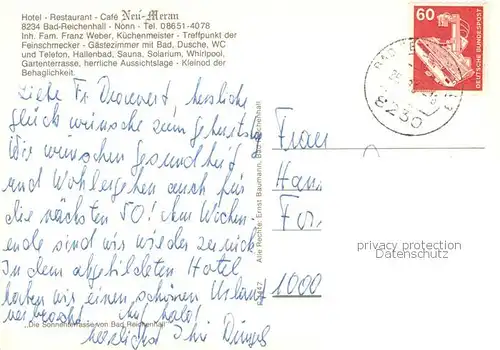 Hotel - Restaurant - Café Neu-Meran
8234 Bad-Reichenhall - Nonn - Tel. 08651-4078
Inh. Fam. Franz Weber, Küchenmeister - Treffpunkt der
Feinschmecker - Gästezimmer mit Bad, Dusche, WC
und Telefon, Hallenbad, Sauna, Solarium, Whirlpool,
Gartenterrasse, herrliche Aussichtslage - Kleinod der
Behaglichkeit.
Liebe Fr herzliche
Glückwünsche zum Geburtstag
Wir wünschen Gesundheit
und Wohlergehen auch für
die nächsten 50! Am Wochen-
ende sind wir wieder zurück
In dem abgebildeten Hotel
haben wir einen schönen Urlaub
verbracht. Auf bald!
herzlichst Ihr
"Die Sonnenterrasse von Bad Reichenhall"
Alle Rechte: Ernst Baumann, Bad Reichenhall
60
DEUTSCHE BUNDESPOST
8230
Frau
Han
For
1000
privacy protection
Datenschutz